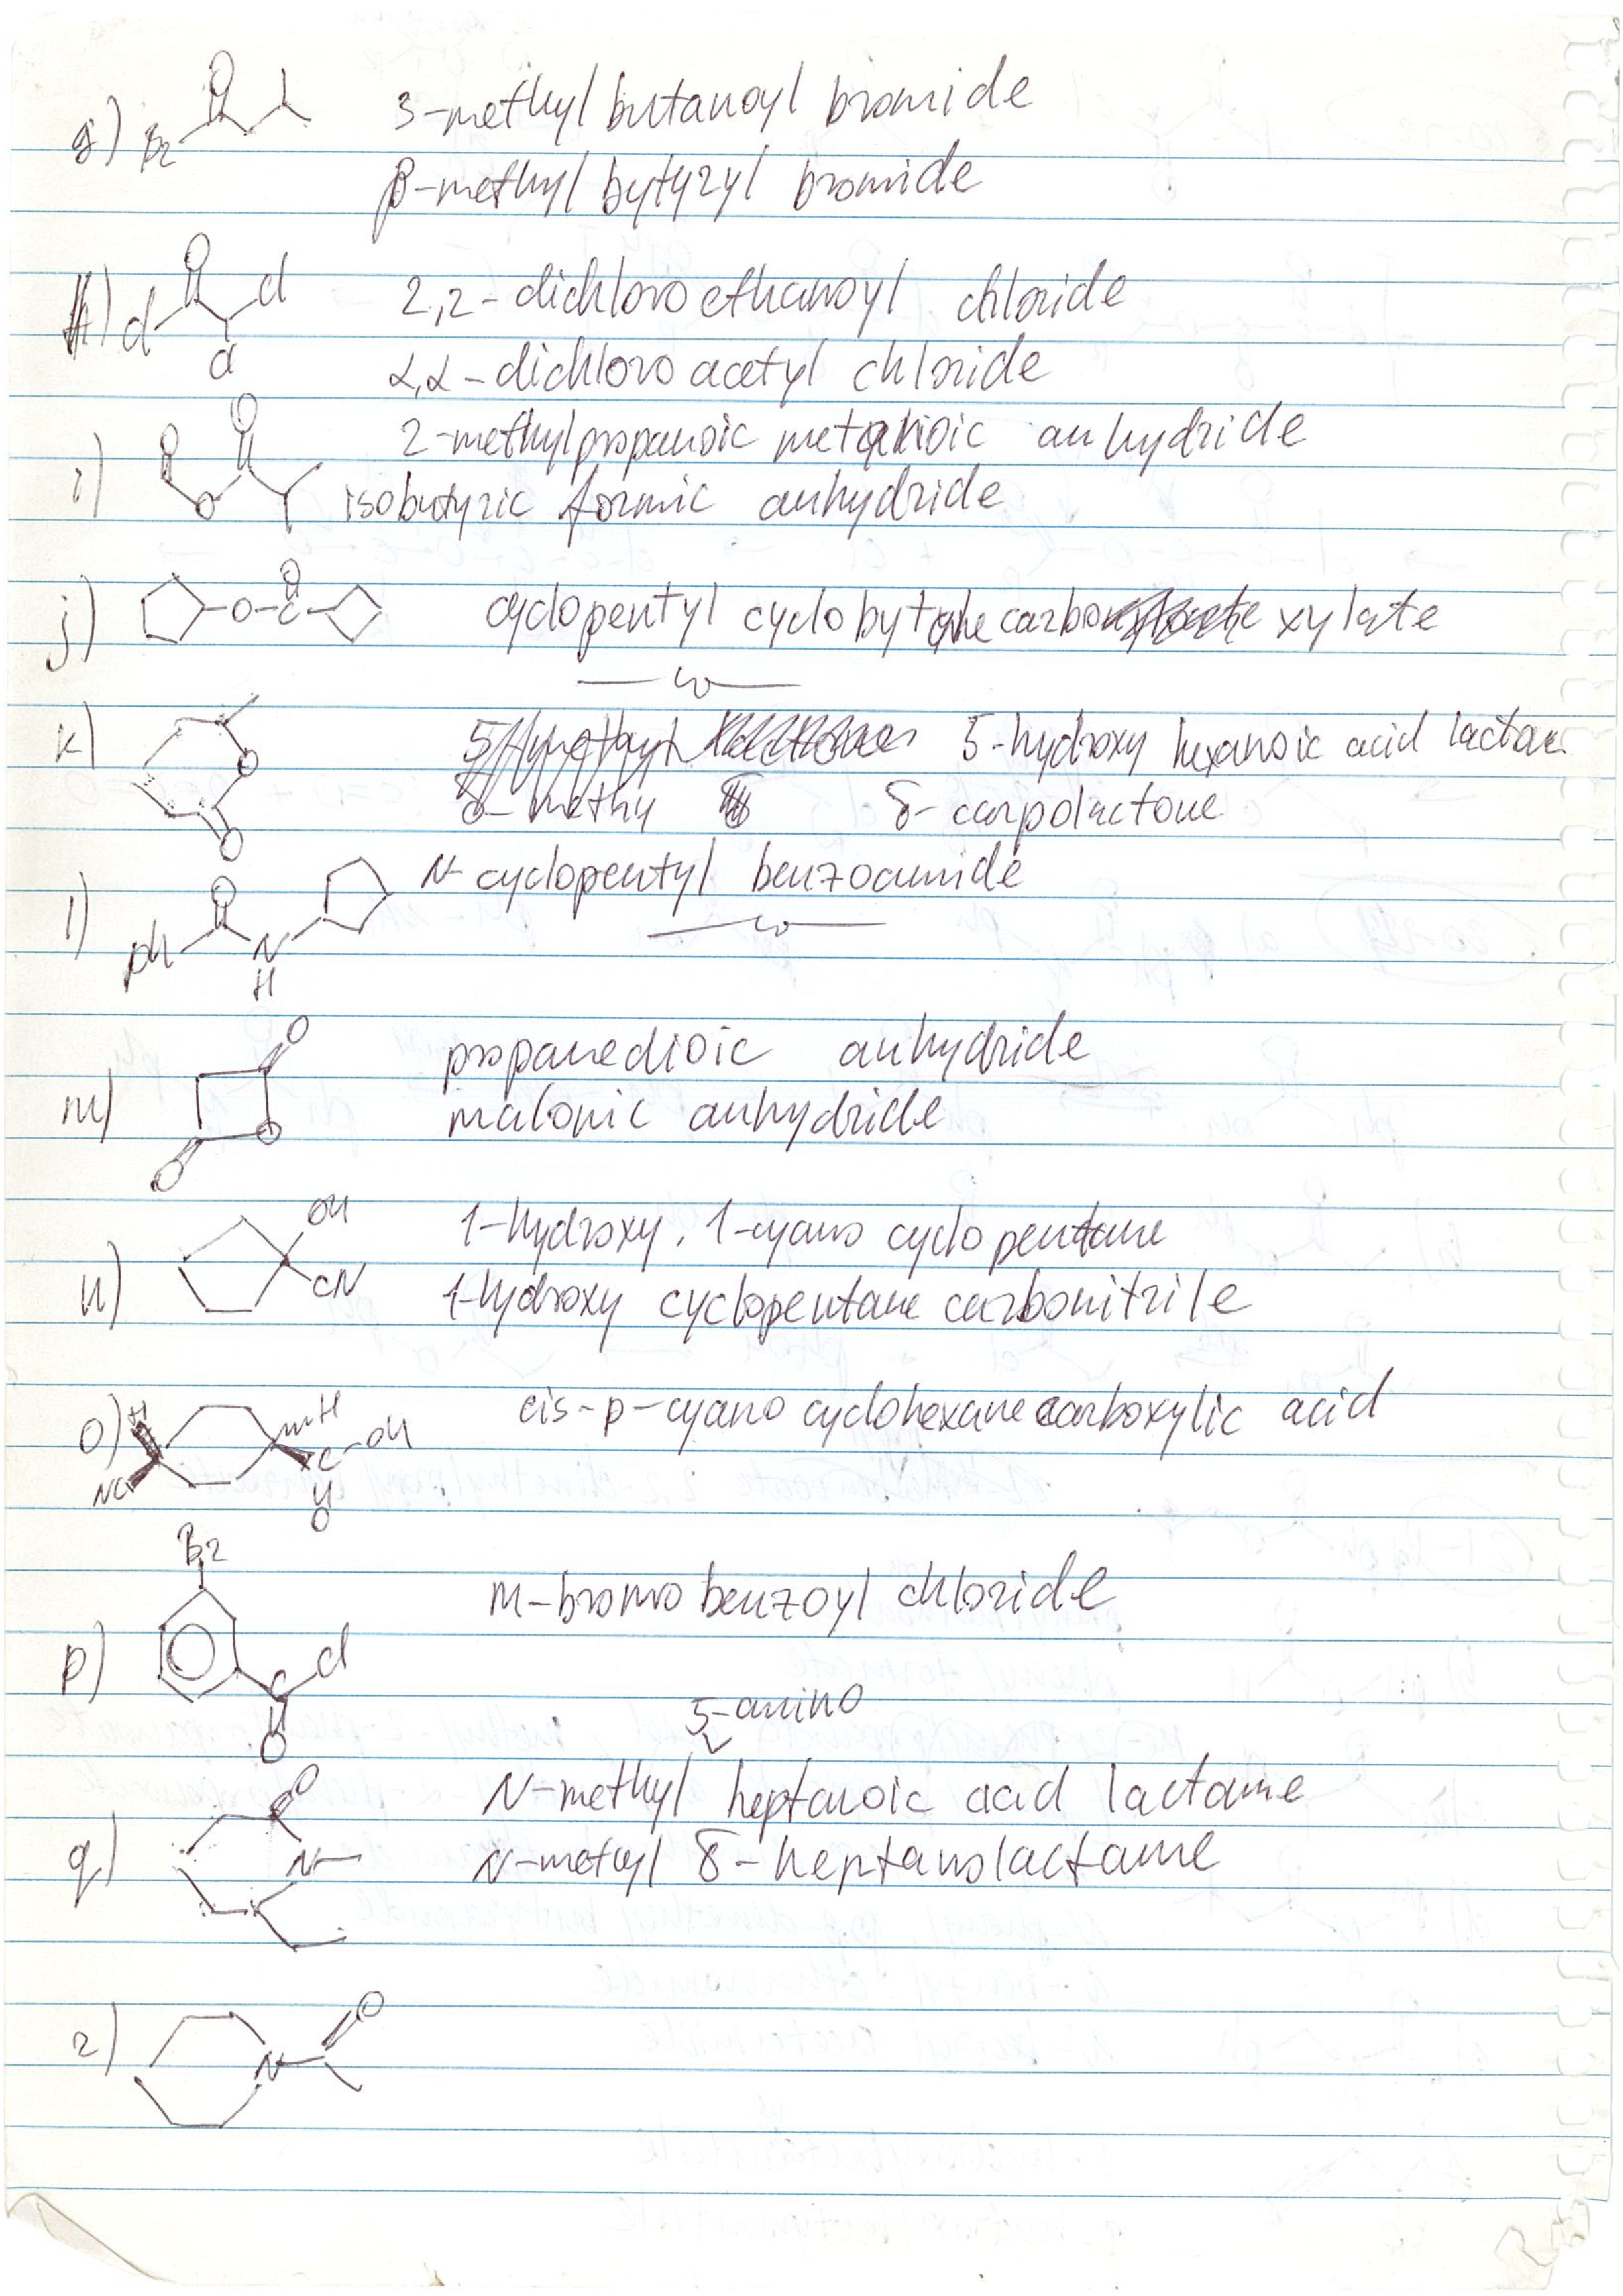 g) Br O 3-methyl butanoyl bromide
β-methyl butyryl bromide
h) Cl O Cl Cl 2,2-dichloro ethanoyl chloride
α,α-dichloro acetyl chloride
i) O O O 2-methylpropanoic metanoic anhydride
isobutyric formic anhydride
j) -O-C- O cyclopentyl cyclobytane carboxylate
k) O O 5-hydroxy hexanoic acid lactone
δ-methy δ-carpolactone
l) Ph O N H N-cyclopentyl benzoamide
m) O O O propanedioic anhydride
malonic anhydride
n) OH CN 1-hydroxy, 1-cyano cyclopentane
1-hydroxy cyclopentane carbonitrile
o) H NC H C-OH O cis-p-cyano cyclohexane carboxylic acid
p) Br C Cl O m-bromo benzoyl chloride
5-amino
q) O N- N-methyl heptanoic acid lactame
N-metyl δ-heptanolactame
r) N O